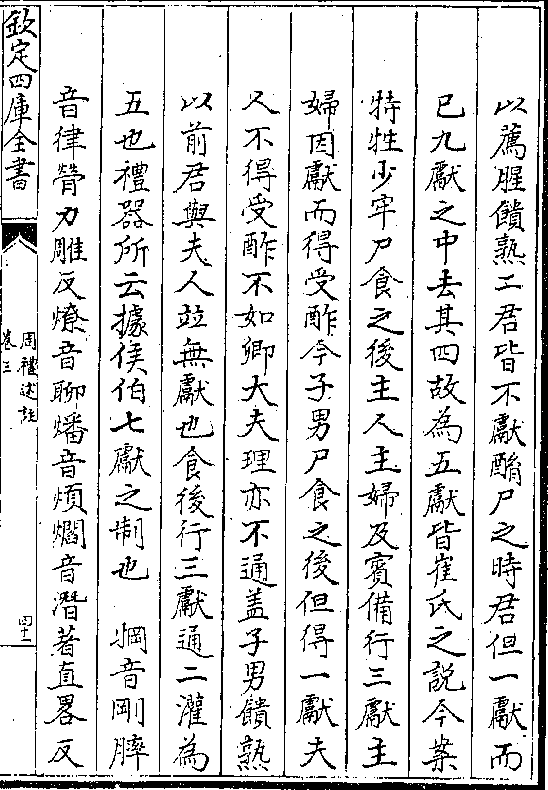 以薦腥饋熟二君皆不獻酳尸之時君但一獻而
已九獻之中去其四故為五獻皆崔氏之說今案
特牲少牢尸食之後主人主婦及賓備行三獻主
婦因獻而得受酢今子男尸食之後但得一獻夫
人不得受酢不如卿大夫理亦不通盖子男饋熟
以前君與夫人竝無獻也食後行三獻通二灌為
五也禮器所云據侯伯七獻之制也　㭃音剛膟
音律膋力雕反燎音聊燔音煩爓音潛著直畧反
欽定四庫全書
周禮述註
卷三
四十二